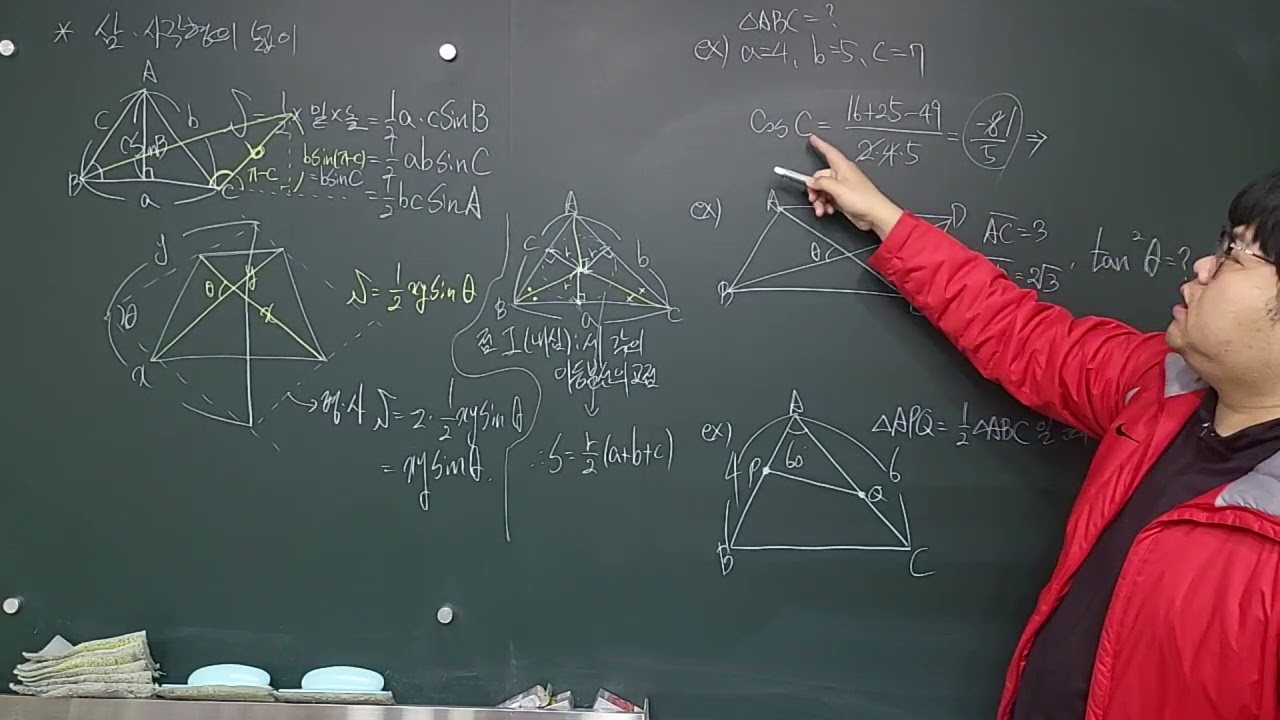 * 삼·사각형의 넓이
A
c
b
c sin B
B
a
C
π-C
S = 1/2 × 밑 × 높 = 1/2 a · c sin B
b sin(π-C) = 1/2 ab sin C
= b sin C
= 1/2 bc sin A
y
θ
y
x
x
S = 1/2 xy sin θ
평·사 S = 2 · 1/2 xy sin θ
= xy sin θ.
A
c
b
r
r
r
B
a
C
점 I (내심) : 세 각의
이등분선의 교점
∴ S = r/2 (a+b+c)
△ABC = ?
ex) a=4, b=5, c=7
cos C = 16+25-49 / 2·4·5 = -1/5 ⇒
ex)
A
D
θ
B
AC = 3
= 2√3, tan²θ = ?
ex)
A
4
60°
6
P
Q
B
C
△APQ = 1/2 △ABC 일